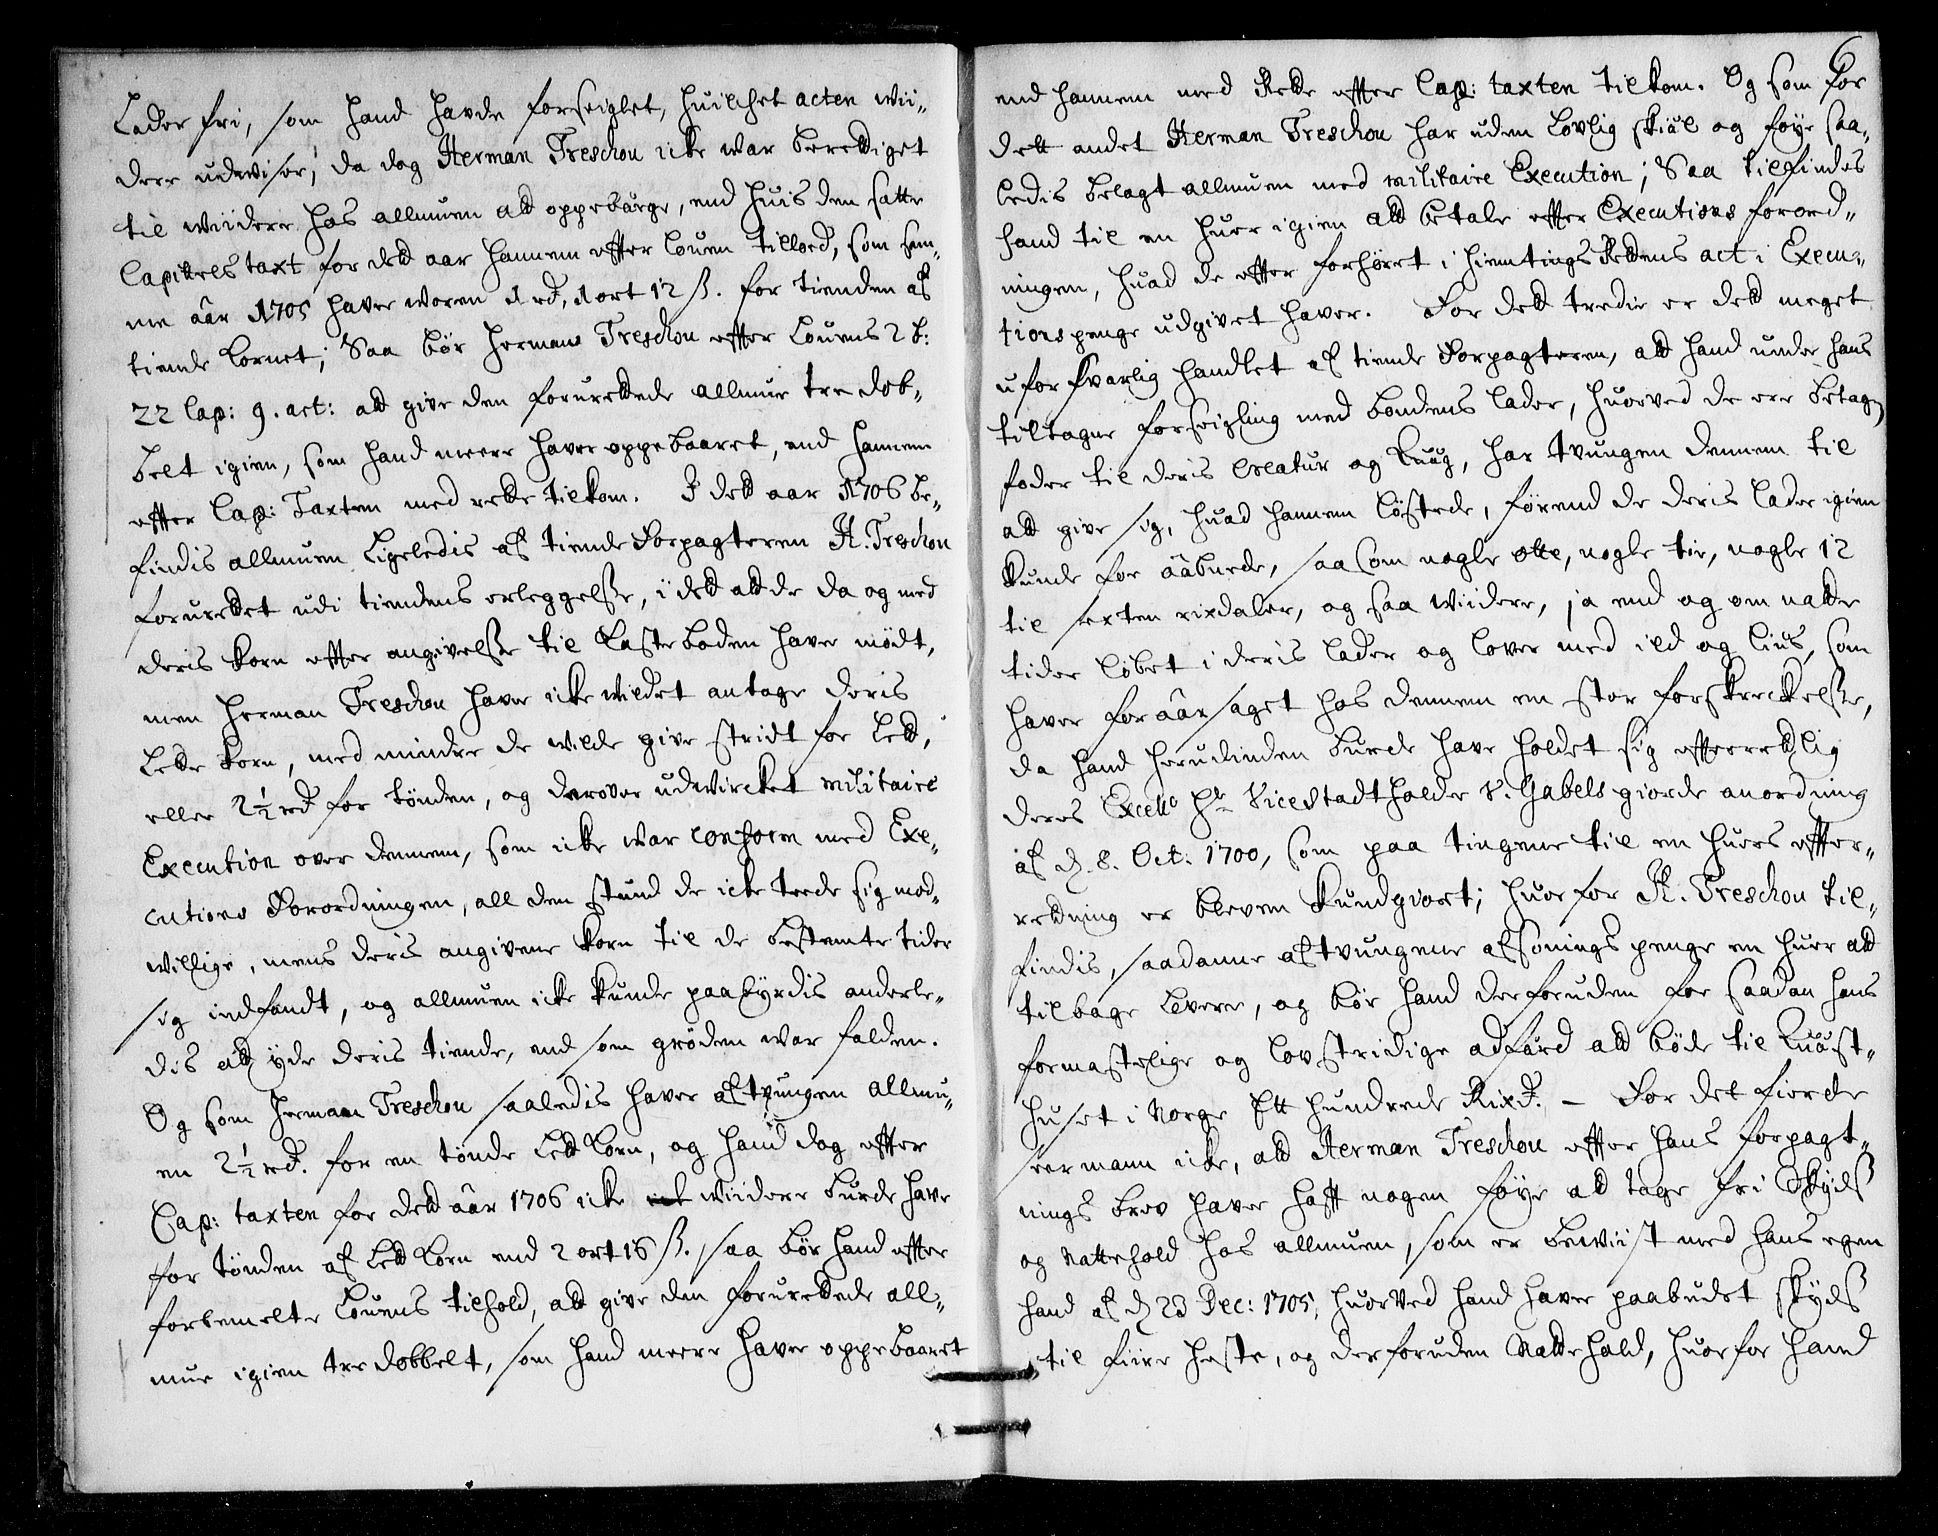 Lader fri, som hand havde forseiglet, huilchet acten wii-
dere udwiser, da dog Herman Treschou icke war berettiget
til wiidere hos allmuen att oppebärge, end huis den satte
Capitels taxt for dett aar hannem efter Louen tilloed, som sam-
me aar 1705 haver woren 1 rd, 1 ort 12 ß. for tienden af
tiende Kornet; Saa bør Herman Treschou efter Louens 2 b:
22 Cap: 9. art: att give den forurettede allmue tre dob-
belt igien, som hand meere haver oppebaaret, end hannem
efter Cap: Taxten med rette tilkom. I dett aar 1706 be-
findis allmuen Ligeledis af tiende Forpagteren H. Treschou
forurettet udi tiendens erleggelsse, i dett att de da og med
deris Korn efter angivelsse til Kasteboden haver mødt,
men Herman Treschou haver icke wildet antage deris
Lette Korn, med mindre de wilde give stridt for Lett,
eller 2½ rd for tønden, og derover udwircket militaire
Execution over dennem, som icke war conform med Exe-
cutions Forordningen, all den stund de icke teede sig mod-
willige, mens deris angivene Korn til de bestemte tider
sig indfandt, og allmuen icke kunde paabyrdis anderle-
dis att yde deris tiende, end som grøden war falden.
Og som Herman Treschou saaledis haver aftvungen allmu-
en 2½ rd. for en tønde Lett Korn, og hand dog efter
Cap: taxten for dett aar 1706 icke wiidere burde have
for tønden af Lett Korn end 2 ort 16 ß. saa bør hand efter
forbemelte Louens tilhold, att give den forurettede all-
mue igien tredobbelt, som hand meere haver oppebaaret
6
end hannem med Rette efter Cap: taxten tilkom. Og som for
dett andet Herman Treschou har uden Lovlig skiäl og føye saa-
ledis belagt allmuen med militaire Execution; Saa tilfindes
hand til en huer igien att betale efter Executions forord-
ningen, huad de efter forhøret i Hiemtings Rettens act i Execu-
tionspenge udgivet haver. For dett tredie er dett meget
uforsvarlig handlet af tiende Forpagteren, att hand under hans
tiltagne forseigling med bondens lader, huorved de ere betagen
foder til deris Creatur og quæg, har tvungen dennem til
att give sig, huad hannem Løstede, førend de deris lader igien
kunde for aabnede, saasom nogle otte, nogle tie, nogle 12
til sexten rixdaler, og saa wiidere, ja end og om natte
tider løbet i deris lader og lover med ild og lius, som
haver foraarsaget hos dennem en stor forskreckelsse,
da hand herudinden burde have holdet sig efterrettlig
deres Excellce Hr Vicestadtholder V. Gabels giorde anordning
af d. 8. Oct: 1700, som paa tingene til en huers efter-
rettning er bleven kundgiort; huorfor H. Treschou til-
findis, saadanne aftvungene afsonings penge en huer att
tilbage Levere, og bør hand desforuden for saadan hans
formastelige og lovstridige adfärd att bøde til Quäst-
huset i Norge Ett hundrede Rixd. – For det fierde
seer mann icke, att Herman Treschou efter hans forpagt-
nings brev haver hafft nogen føye att tage fri Skyds
og Nattehold hos allmuen, som er bewiist med hans egen
hand af d 23 Dec: 1705, huorved hand haver paabudet Skyds
til fiire heste, og desforuden Nattehold, huorfor hand